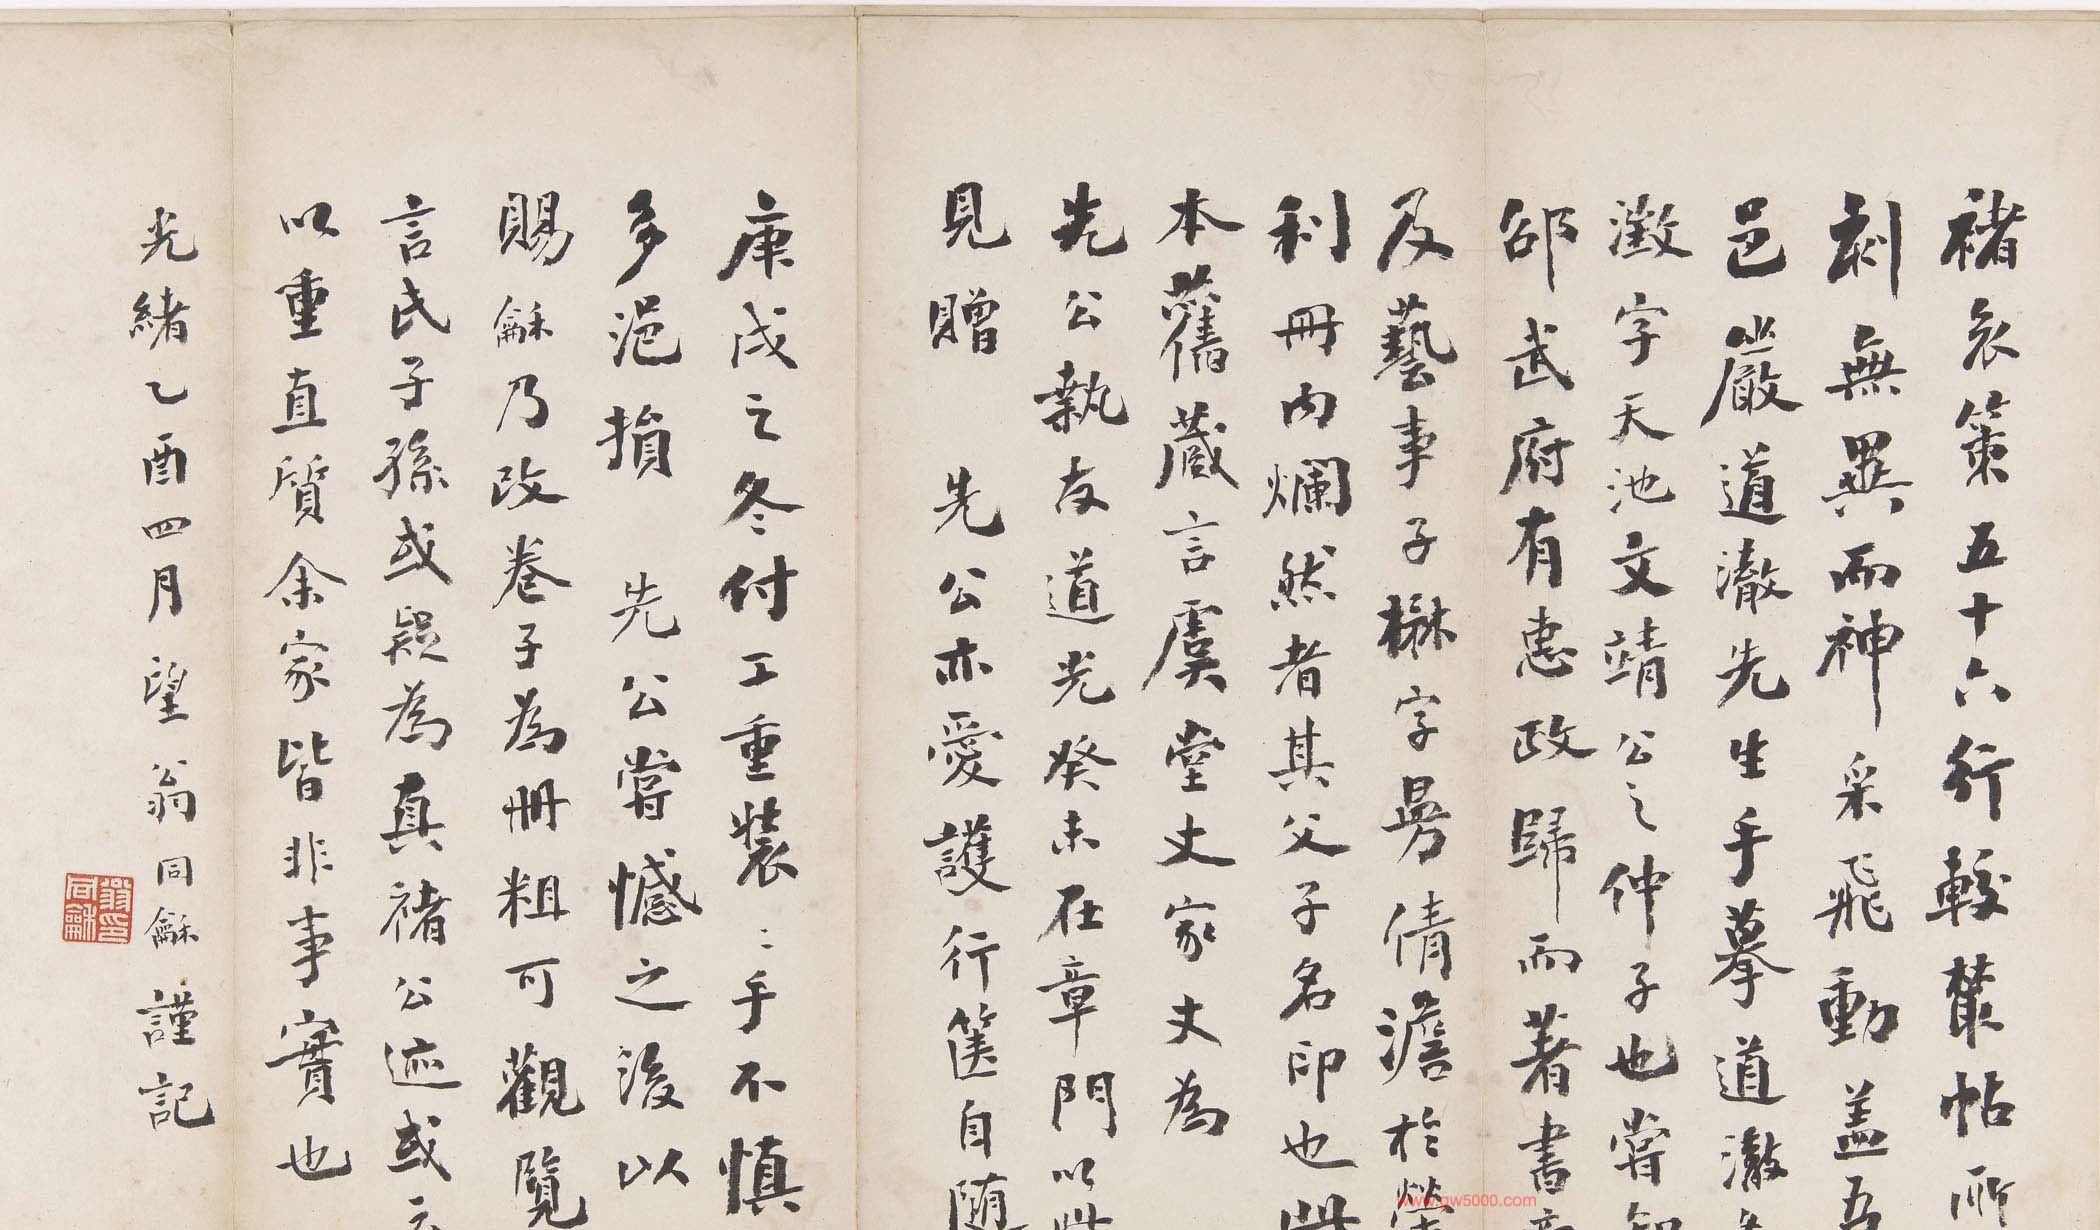 褚哀策五十六行較叢帖所
刻無異而神采飛動盖五
邑嚴道澈先生手摹道澈
澂字天池文靖公之仲子也嘗知
邵武府有惠政歸而著書
及藝事子楙字曼倩澹於榮
利冊内爛然者其父子名印也此
本舊藏言虞堂丈家丈為
先公執友道光癸未在章門以此
見贈 先公亦愛護行篋自随
庚戌之冬付工重裝〻手不慎
多浥損 先公嘗憾之後以
賜龢乃改卷子為冊粗可觀覽
言氏子孫或疑為真褚公迹或云
以重直質余家皆非事實也
光緒乙酉四月望翁同龢謹記
翁同龢印
www.gw5000.com